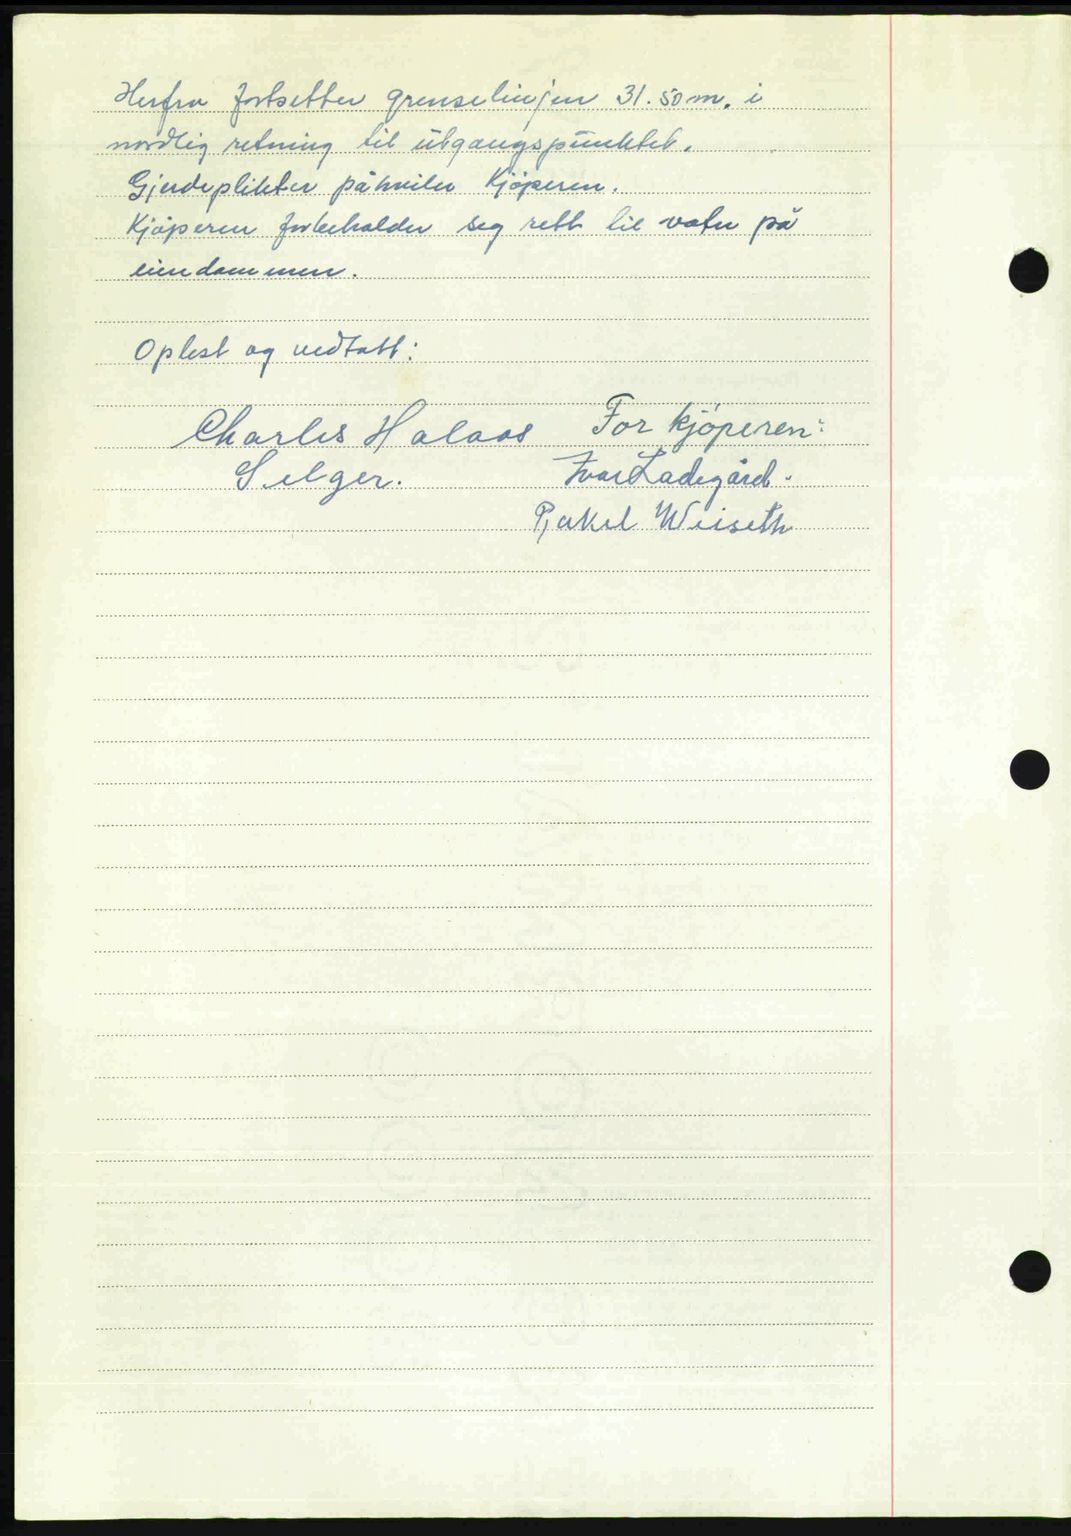 Herfra fortsetter grenselinjen 31.50 m. i
nordlig retning til utgangspunktet.
Gjerdeplikten påhviler Kjöperen.
Kjöperen forbeholder seg rett til vatn på
eiendommen.
Oplest og vedtatt:
Charles Halaas
Selger.
For kjöperen:
Ivar Ladegård.
Rakel Weiseth